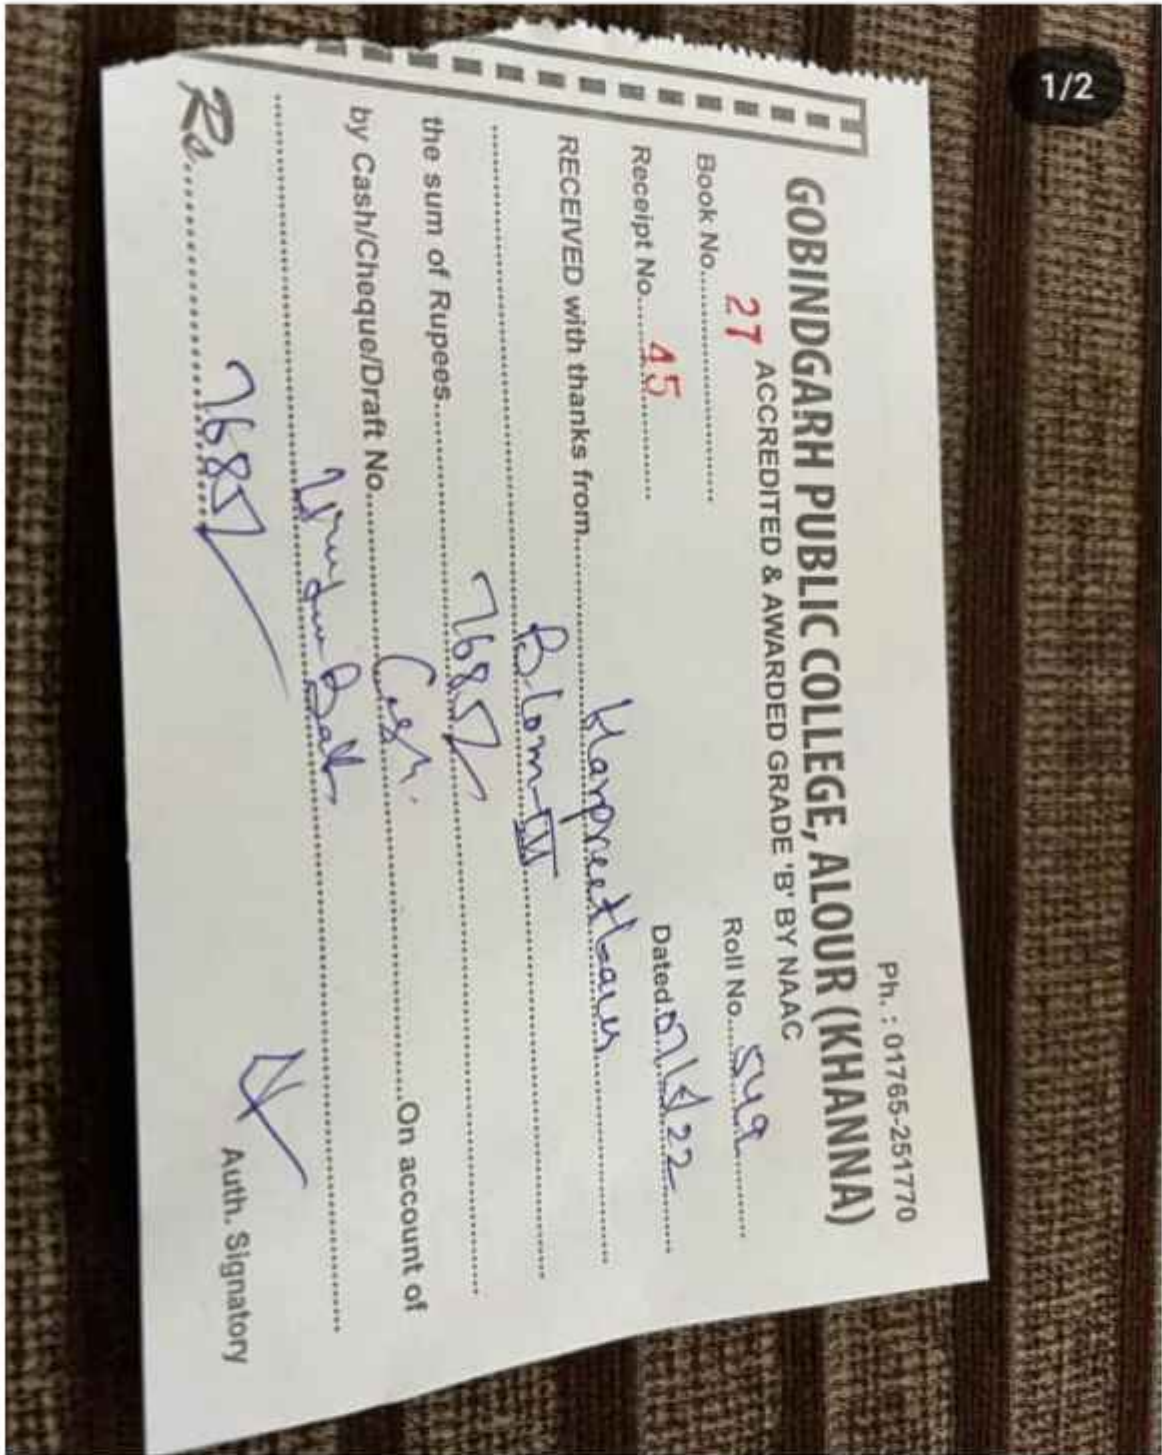 1/2
Ph. : 01765-251770
GOBINDGARH PUBLIC COLLEGE, ALOUR (KHANNA)
ACCREDITED & AWARDED GRADE 'B' BY NAAC
Book No. 27 Roll No. 549
Receipt No. 45 Dated 22
RECEIVED with thanks from Harpreet Kaur
B.Com-III
the sum of Rupees 7685/
by Cash/Cheque/Draft No. Cash. On account of
Rs. 7685/
Auth. Signatory